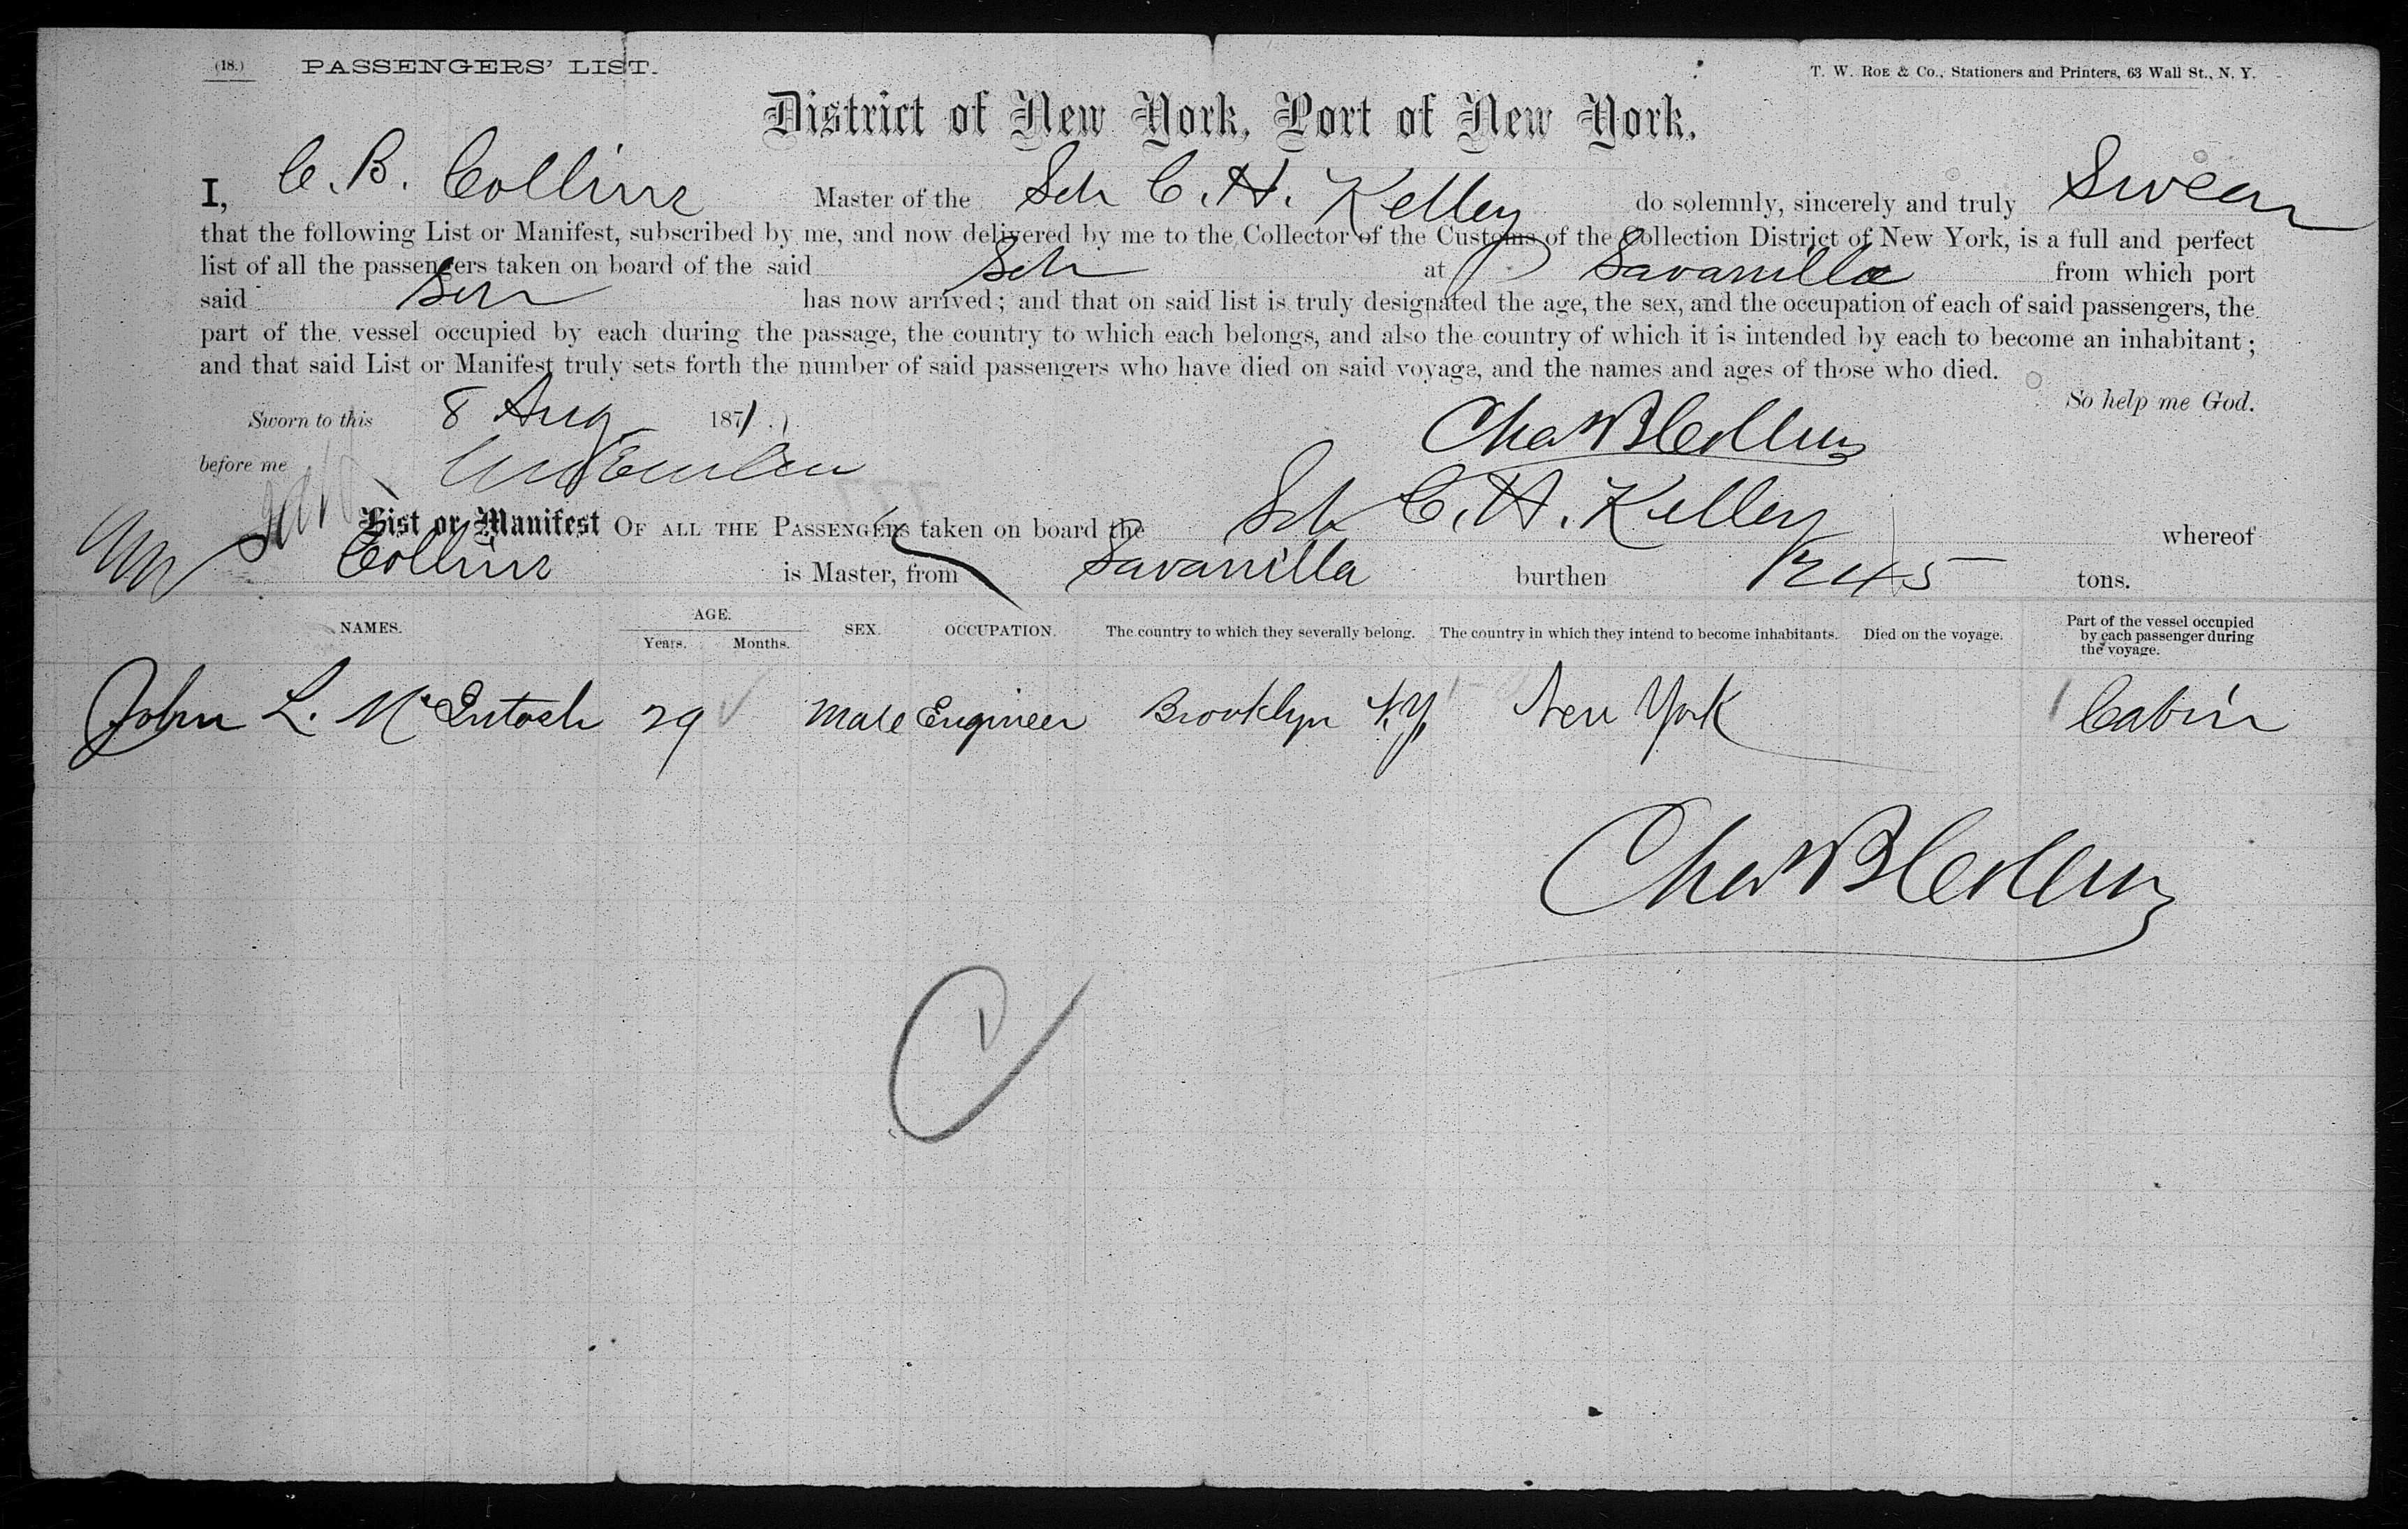 (18.) PASSENGERS' LIST. T. W. ROE & Co., Stationers and Printers, 63 Wall St., N. Y.
District of New York, Port of New York.
I, C. B. Collins Master of the Sch C. H. Kelley do solemnly, sincerely and truly Swear
that the following List or Manifest, subscribed by me, and now delivered by me to the Collector of the Customs of the Collection District of New York, is a full and perfect
list of all the passengers taken on board of the said Sch at Savanilla from which port
said Sch has now arrived; and that on said list is truly designated the age, the sex, and the occupation of each of said passengers, the
part of the vessel occupied by each during the passage, the country to which each belongs, and also the country of which it is intended by each to become an inhabitant;
and that said List or Manifest truly sets forth the number of said passengers who have died on said voyage, and the names and ages of those who died.
So help me God.
Sworn to this 8 Aug 1871.
Chas B Collins
before me
List or Manifest OF ALL THE PASSENGERS taken on board the Sch C. H. Kelley whereof
Collins is Master, from Savanilla burthen 245 tons.
NAMES. AGE. Years. Months. SEX. OCCUPATION. The country to which they severally belong. The country in which they intend to become inhabitants. Died on the voyage. Part of the vessel occupied by each passenger during the voyage.
John L. McIntosh 29 Male Engineer Brooklyn N.Y. New York Cabin
Chas B Collins
1